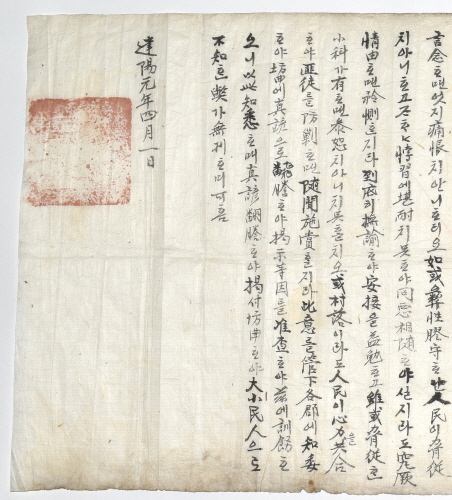 言念ᄒᆞ면엇지痛恨치아니ᄒᆞ리오如或彛性膠守ᄒᆞᄂᆞᆫ民이脅從
치아니ᄒᆞ고져ᄒᆞ나悖習에堪耐치못ᄒᆞ야同惡相隨ᄒᆞ야신지라도究厥
情由ᄒᆞ면矜惻ᄒᆞᆫ지라到底히撫諭ᄒᆞ야安接을益勉ᄒᆞ고雖或脅從ᄒᆞᆫ
小科가有ᄒᆞ면叅恕치아니치못ᄒᆞᆯ지오或村落이라도人民이心力을共合
ᄒᆞ야匪徒를防剿ᄒᆞ면隨聞施賞ᄒᆞᆯ지라此意를管下各郡에知委
ᄒᆞ야坊曲에真諺으로飜謄ᄒᆞ야揭示等因을准查ᄒᆞ야玆에訓飭ᄒᆞ
오니以此知悉ᄒᆞ며真諺翻謄ᄒᆞ야揭付坊曲ᄒᆞ야大小民人으로
不知ᄒᆞᄂᆞᆫ獘가無케ᄒᆞ며可홈
建陽元年四月一日